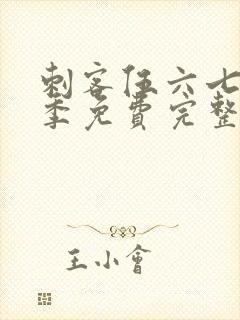 刺客伍六七
季免費完整
王小會